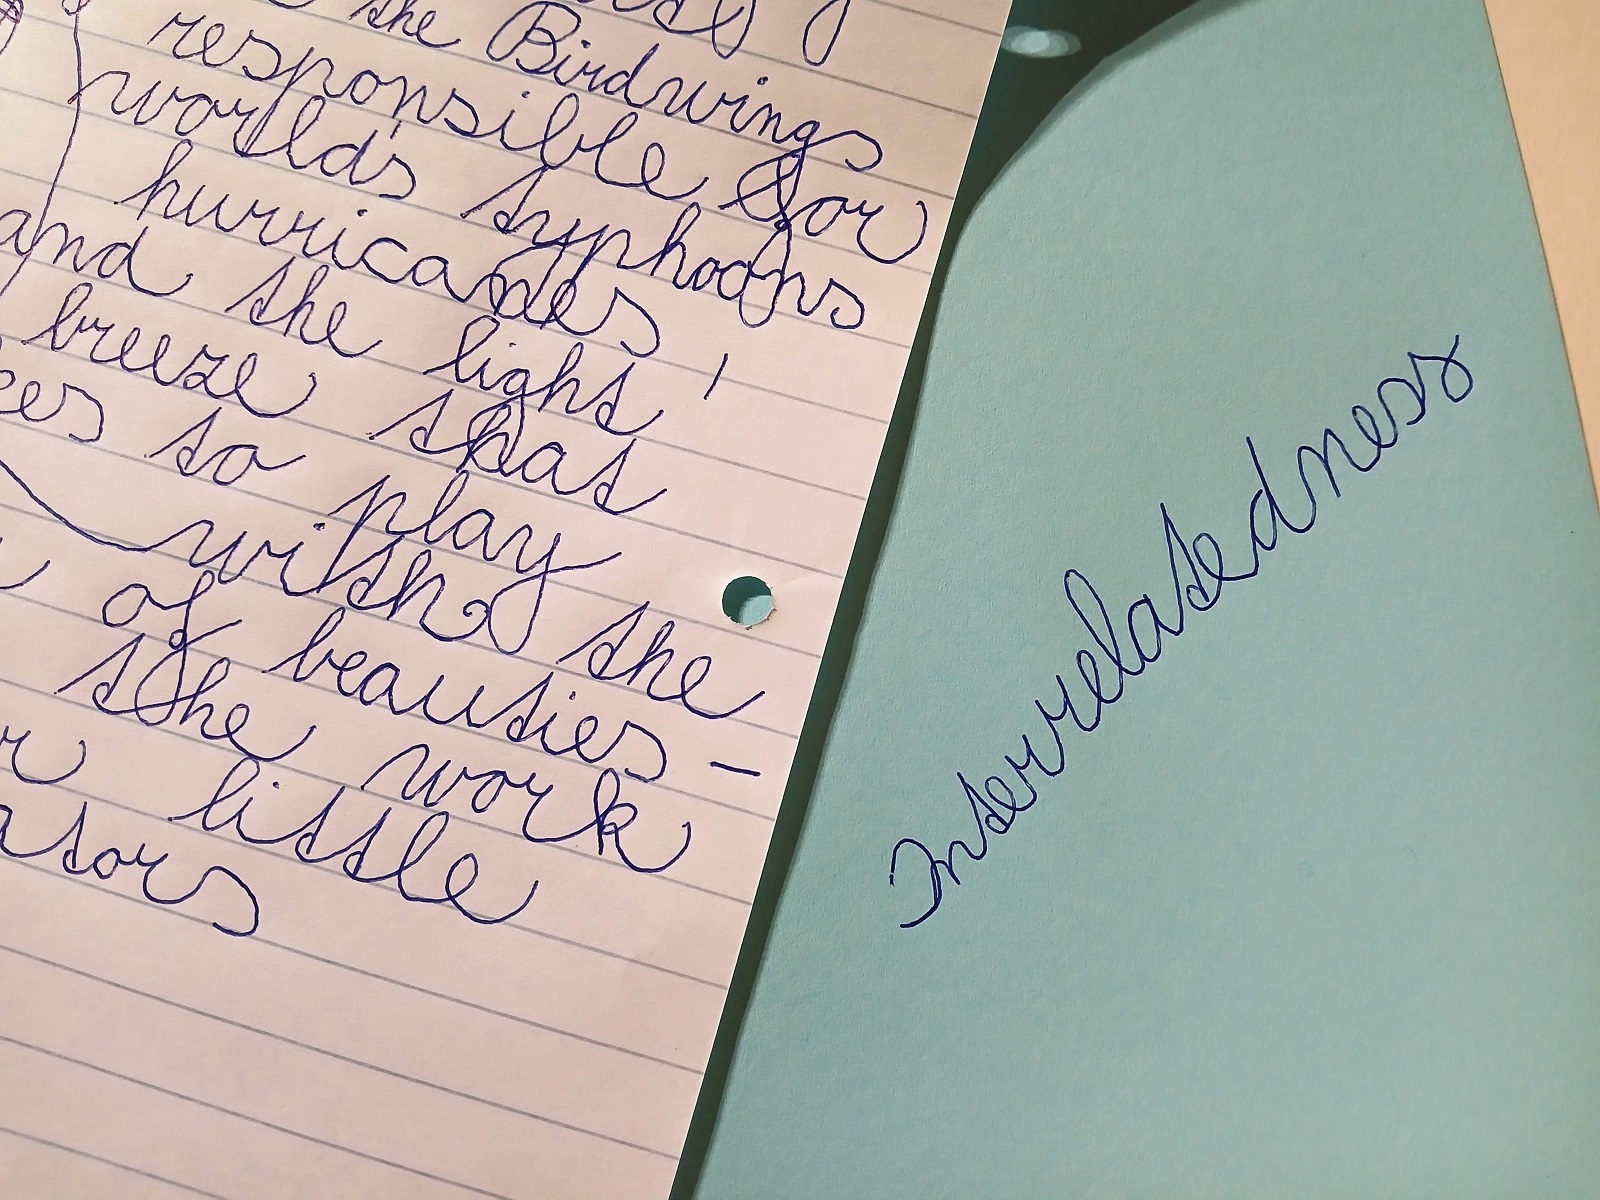 the Birdwings
responsible for
world's typhoons
hurricanes,
and the light
breeze that
to play
with the
of beauties -
the work
little
Interrelatedness